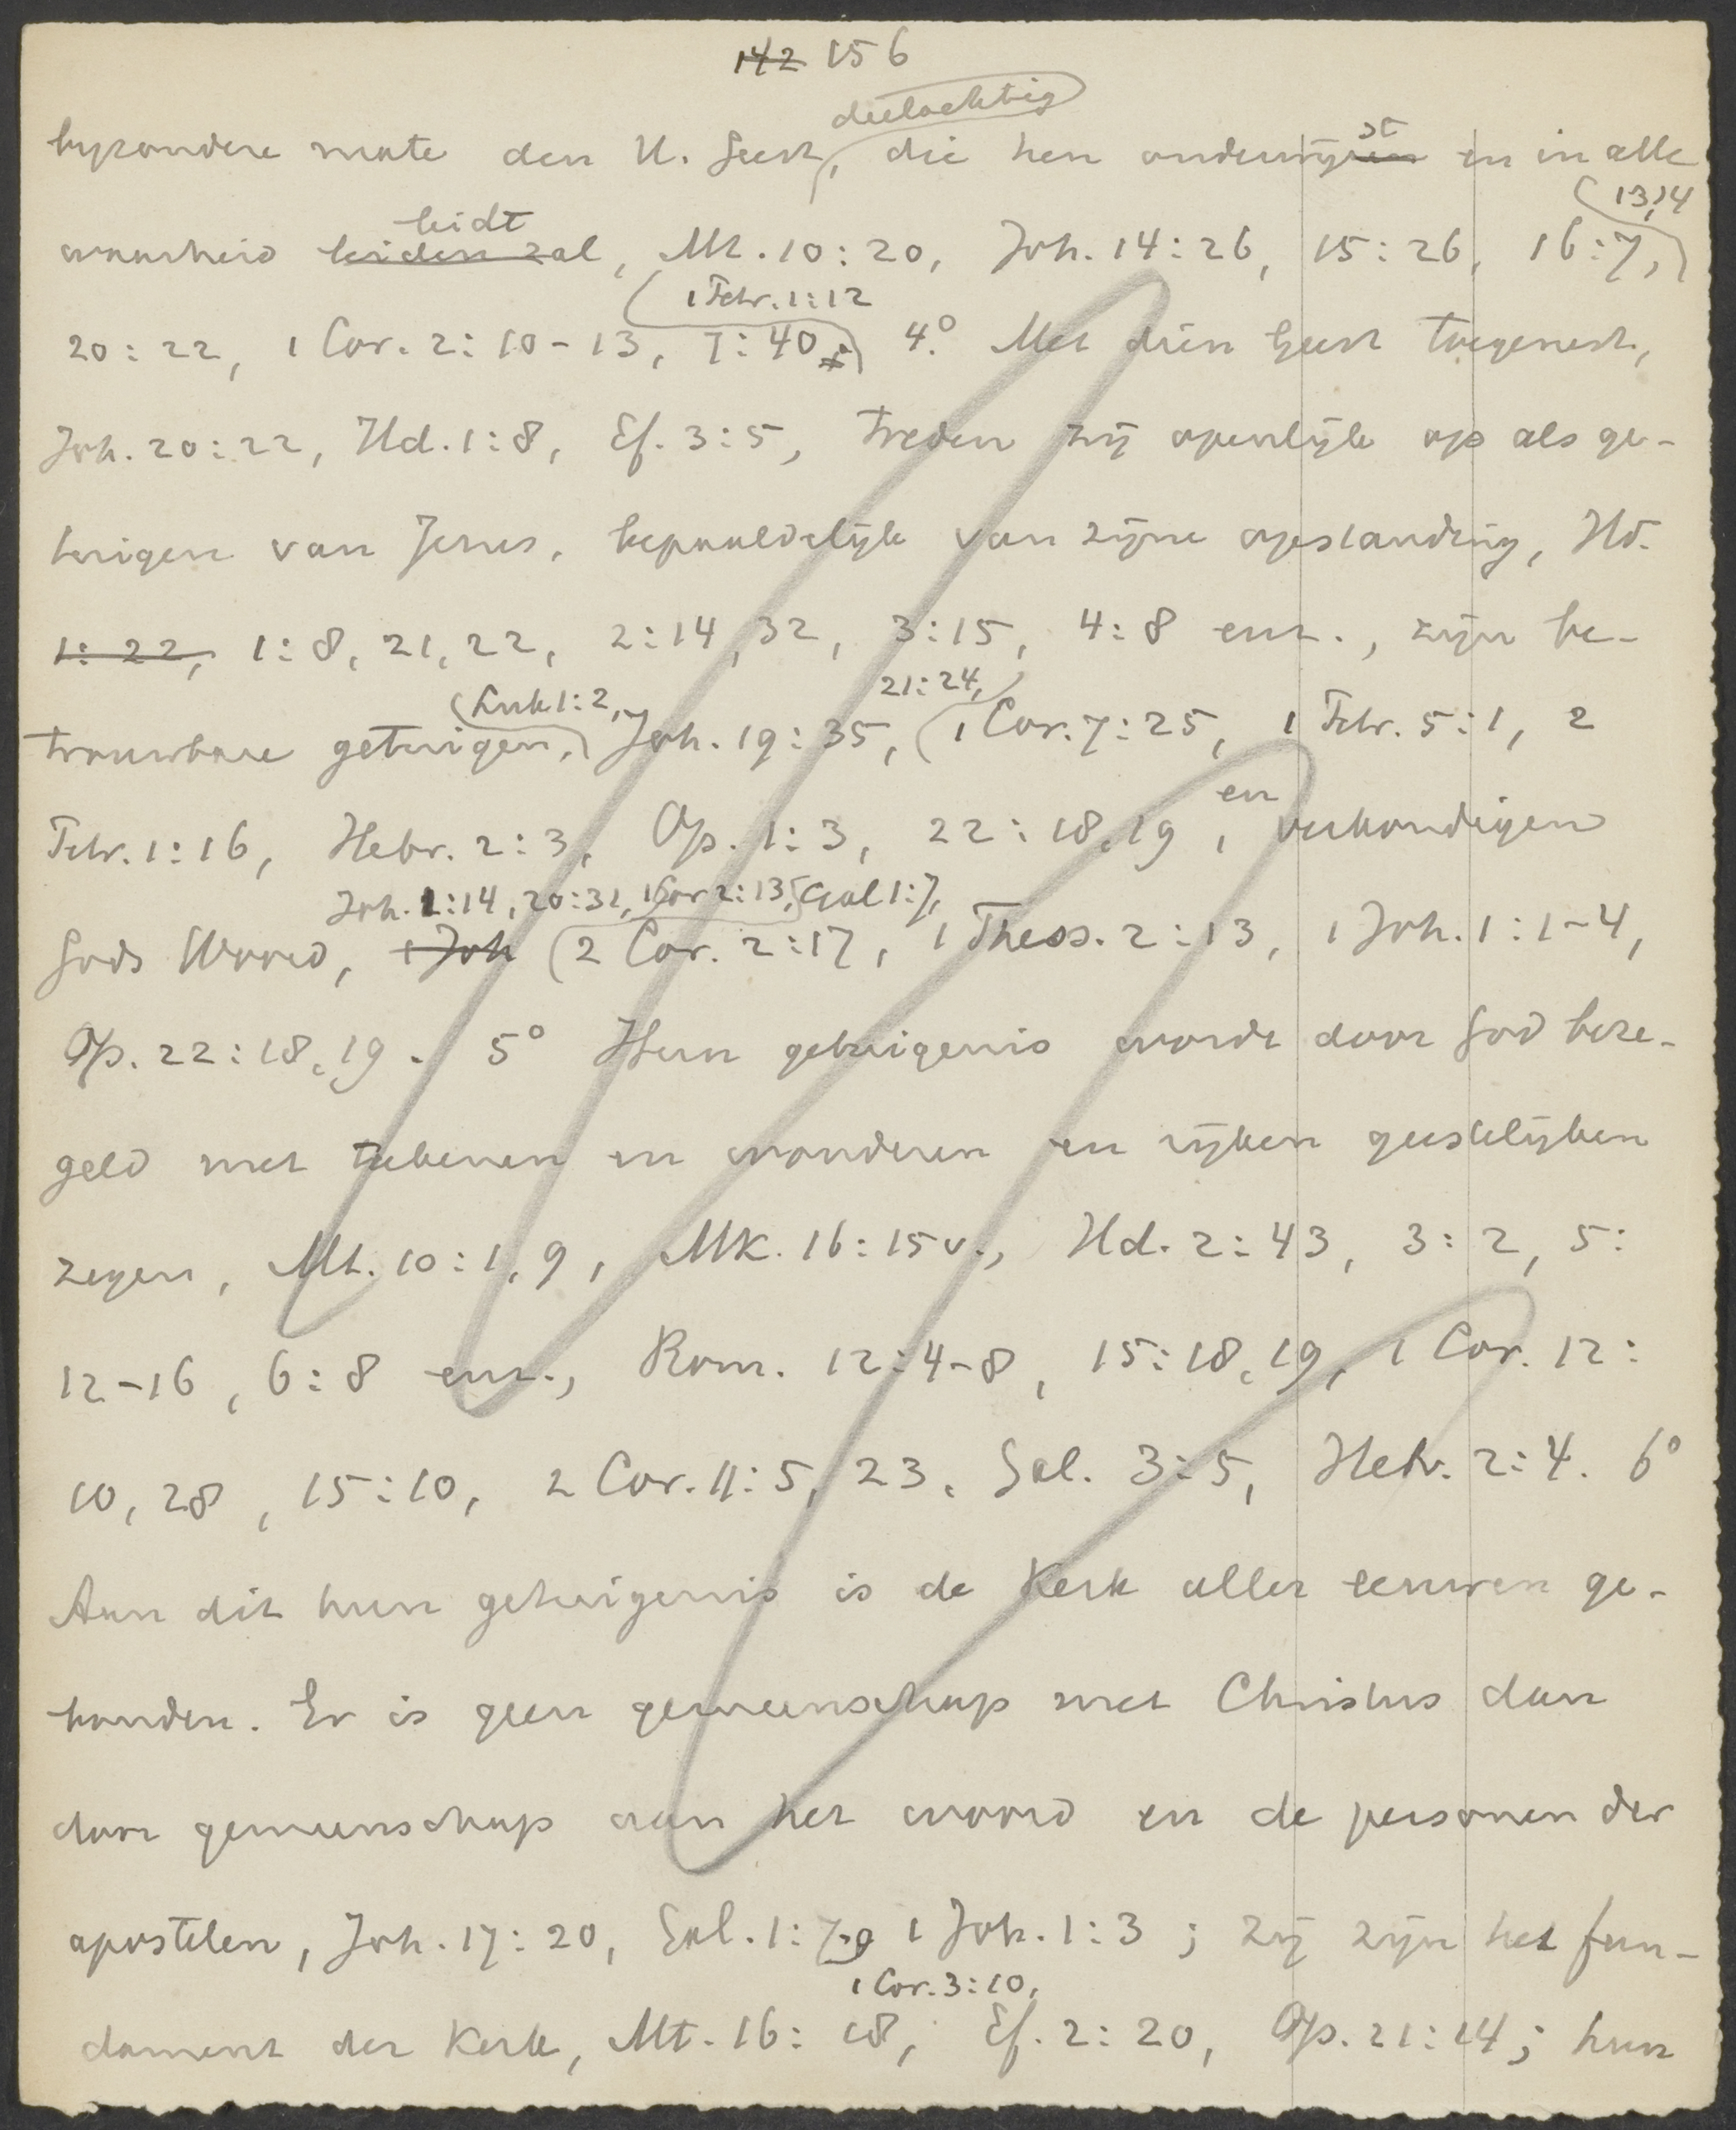 142 156
deelachtig
byzondere mate den H. Geest, die hen onderwijzen en in alle
st
13,14
leidt
waarheid leiden zal, Mt. 10:20, Joh. 14:26, 15:26, 16:7,
1 Petr. 1:12
20:22, 1 Cor. 2:10-13, 7:40, 4.° Met dien Geest toegerust,
Joh. 20:22, Hd. 1:8, Ef. 3:5, treden zij openlijk op als ge-
tuigen van Jezus, bepaaldelijk van zijne opstanding, Hd.
1:22, 1:8, 21, 22, 2:14, 32, 3:15, 4:8 enz., zijn be-
Luk 1:2, 21:24,
trouwbare getuigen, Joh. 19:35, 1 Cor. 7:25, 1 Petr. 5:1, 2
en
Petr. 1:16, Hebr. 2:3, Op. 1:3, 22:18, 19, verkondigen
Joh. 1:14, 20:31, 1 Cor 2:13, Gal 1:7,
Gods Woord, 1 Joh 2 Cor. 2:17, 1 Thess. 2:13, 1 Joh. 1:1-4,
Op. 22:18, 19. 5° Hun getuigenis wordt door God beze-
geld met tekenen en wonderen en rijken geestelijken
zegen, Mt. 10:1, 9, Mk. 16:15 v., Hd. 2:43, 3:2, 5:
12-16, 6:8 enz., Rom. 12:4-8, 15:18, 19, 1 Cor. 12:
10, 28, 15:10, 2 Cor. 11:5, 23, Gal. 3:5, Hebr. 2:4. 6°
Aan dit hun getuigenis is de Kerk aller eeuwen ge-
bonden. Er is geen gemeenschap met Christus dan
door gemeenschap aan het woord en de personen der
apostelen, Joh. 17:20, Gal. 1:7-9 1 Joh. 1:3; zij zijn het fun-
1 Cor. 3:10,
dament der Kerk, Mt. 16:18, Ef. 2:20, Op. 21:14; hun